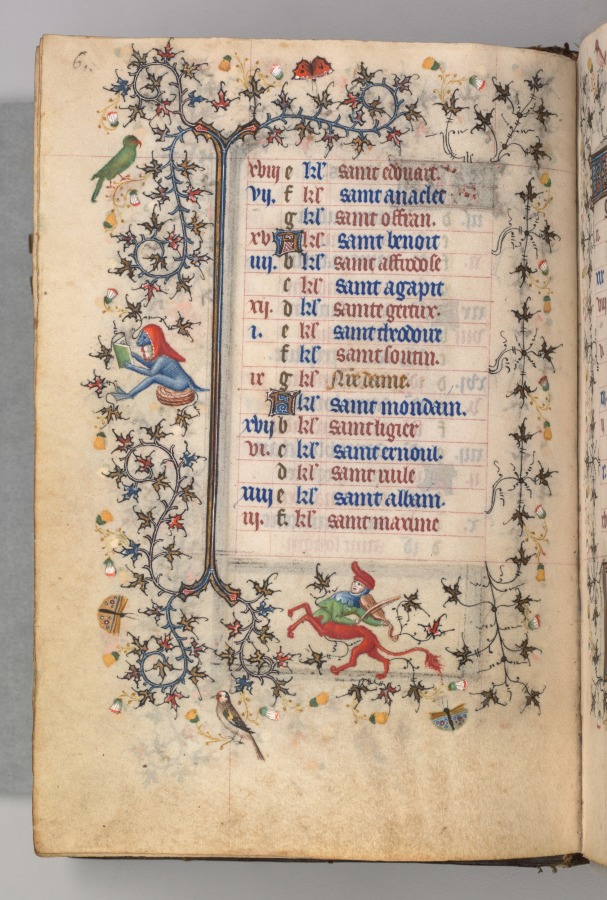 6.
xviij e kl' saint edouart.
vij. f kl' saint anaclet
g kl' saint offran.
xv A kl' saint benoit
iiij. b kl' saint affrodose
c kl' saint agapit
xij. d kl' sainte gertrux.
i. e kl' saint theodoire
f kl' saint soutin.
ix g kl' Nre dame.
A kl' saint mondain.
xvij b kl' saint ligier
vi. c kl' saint ernoul.
d kl' saint rule
xiiij e kl' saint albain.
iij. f. kl' saint maxime